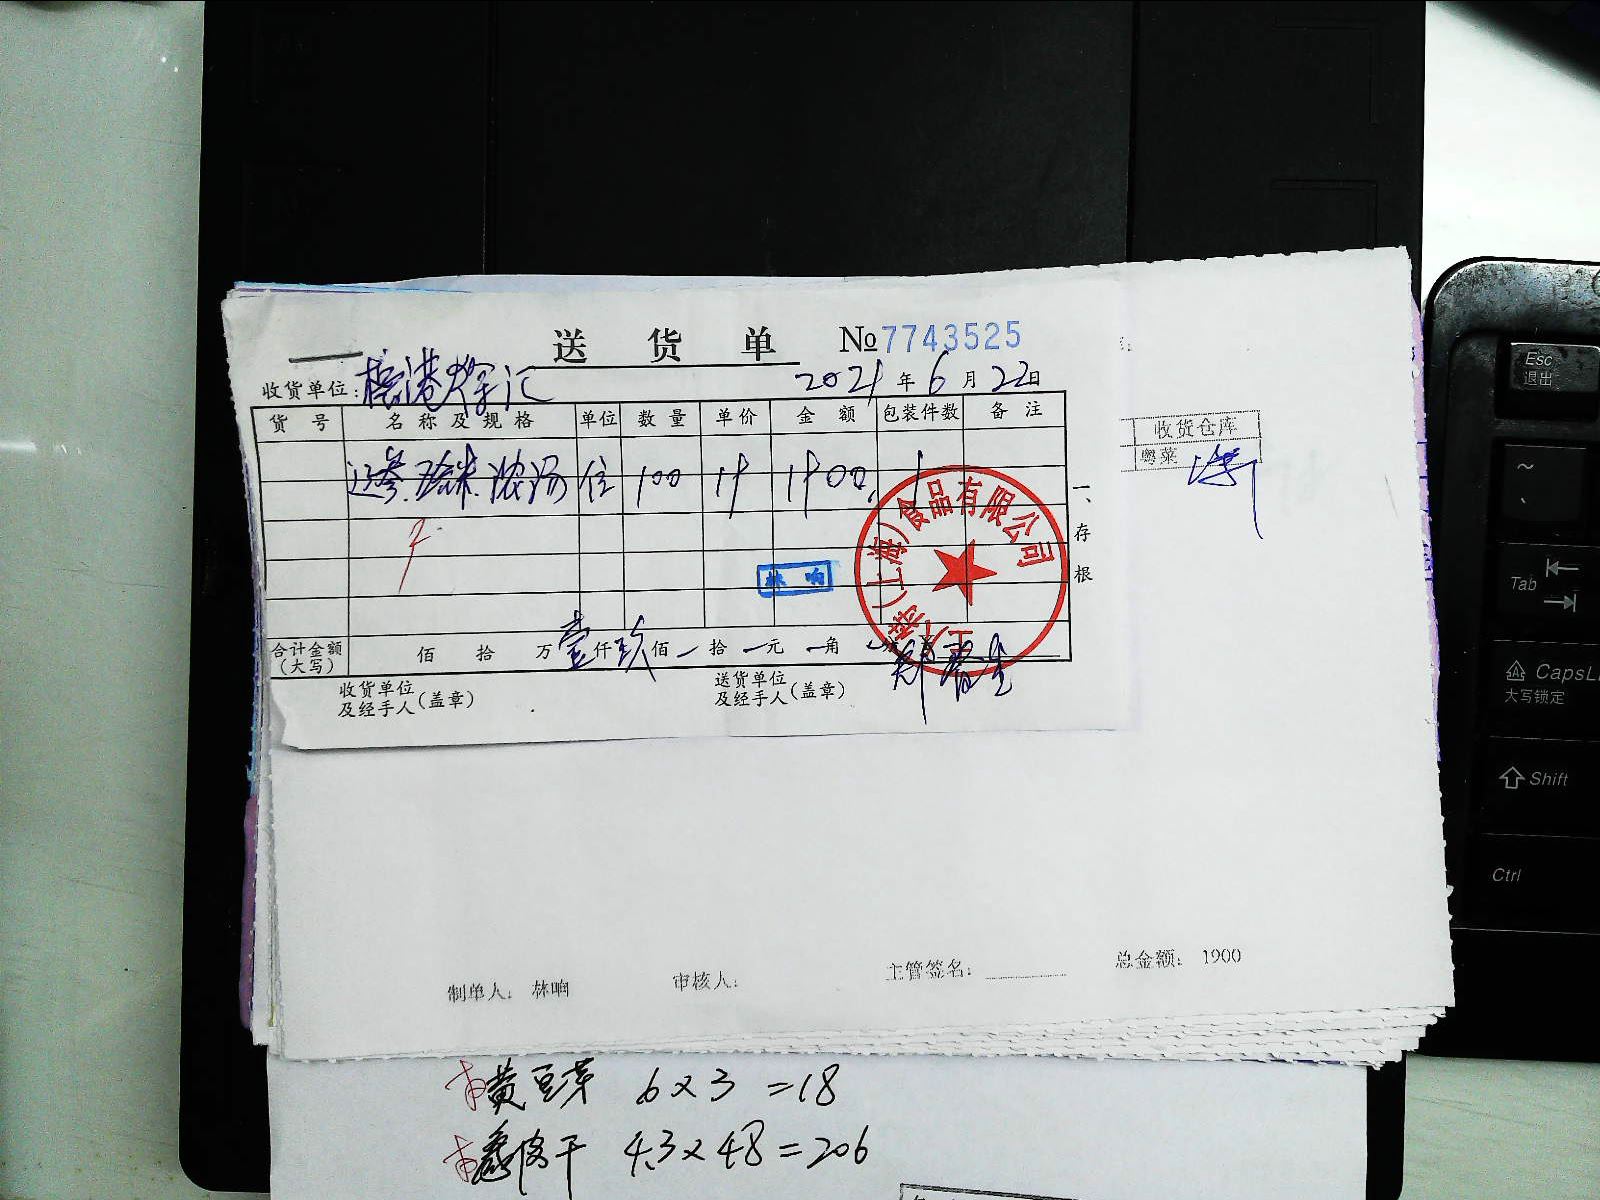 送货单 №7743525
收货单位:
2021年6月22日
货号 名称及规格 单位 数量 单价 金额 包装件数 备注
位 100 19 1900. 1
一、存根
林响
(上海)食品有限公司
合计金额(大写) 佰 拾 万壹仟玖佰 拾 元 角
收货单位及经手人(盖章)
送货单位及经手人(盖章)
收货仓库
粤菜
制单人: 林响
审核人:
主管签名:
总金额: 1900
黄豆芽 6×3=18
4.3×48=206
Esc
退出
~
Tab
CapsL
大写锁定
Shift
Ctrl